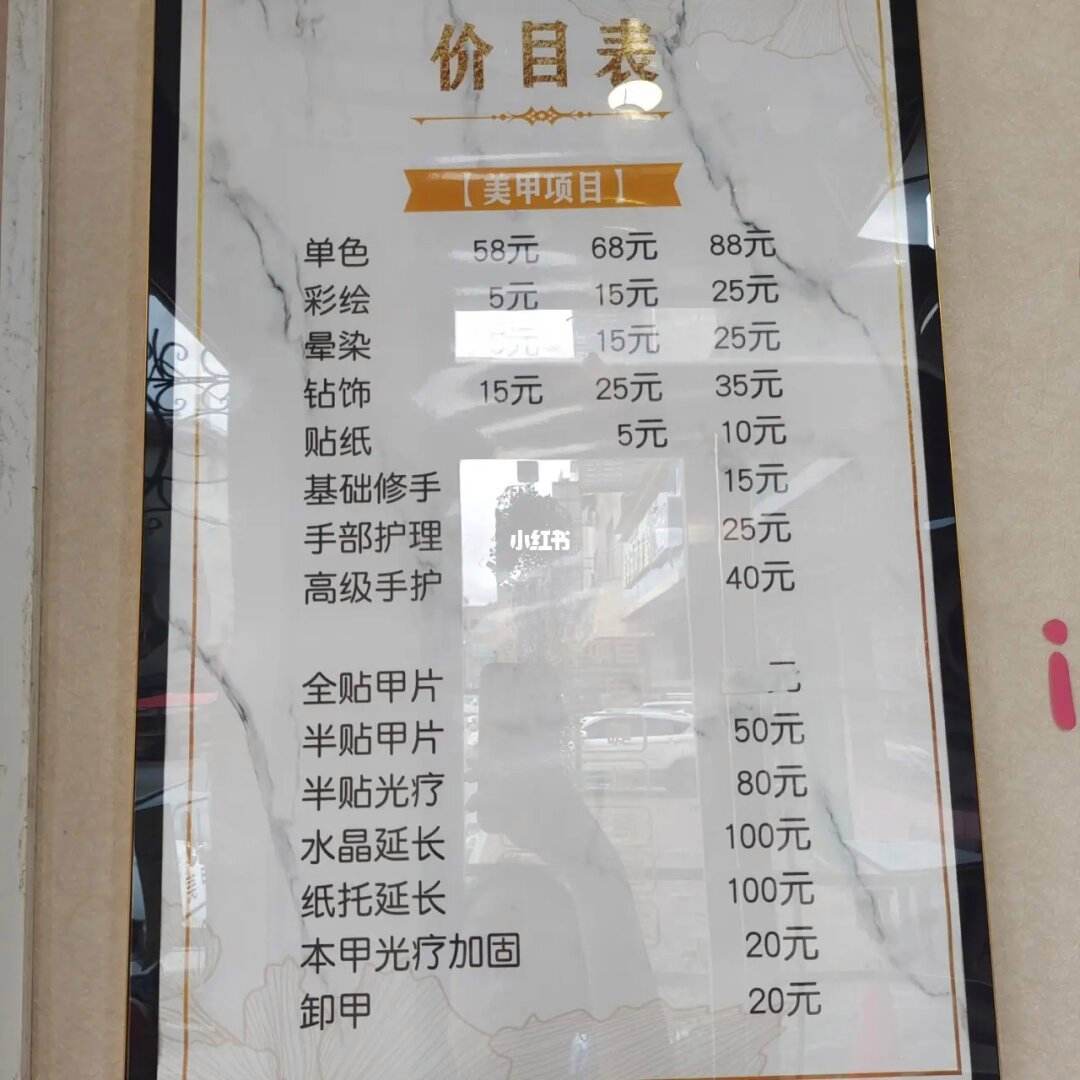 价目表
【美甲项目】
单色 58元 68元 88元
彩绘 5元 15元 25元
晕染 5元 15元 25元
钻饰 15元 25元 35元
贴纸 5元 10元
基础修手 15元
手部护理 25元
小红书
高级手护 40元
全贴甲片 元
半贴甲片 50元
半贴光疗 80元
水晶延长 100元
纸托延长 100元
本甲光疗加固 20元
卸甲 20元
i